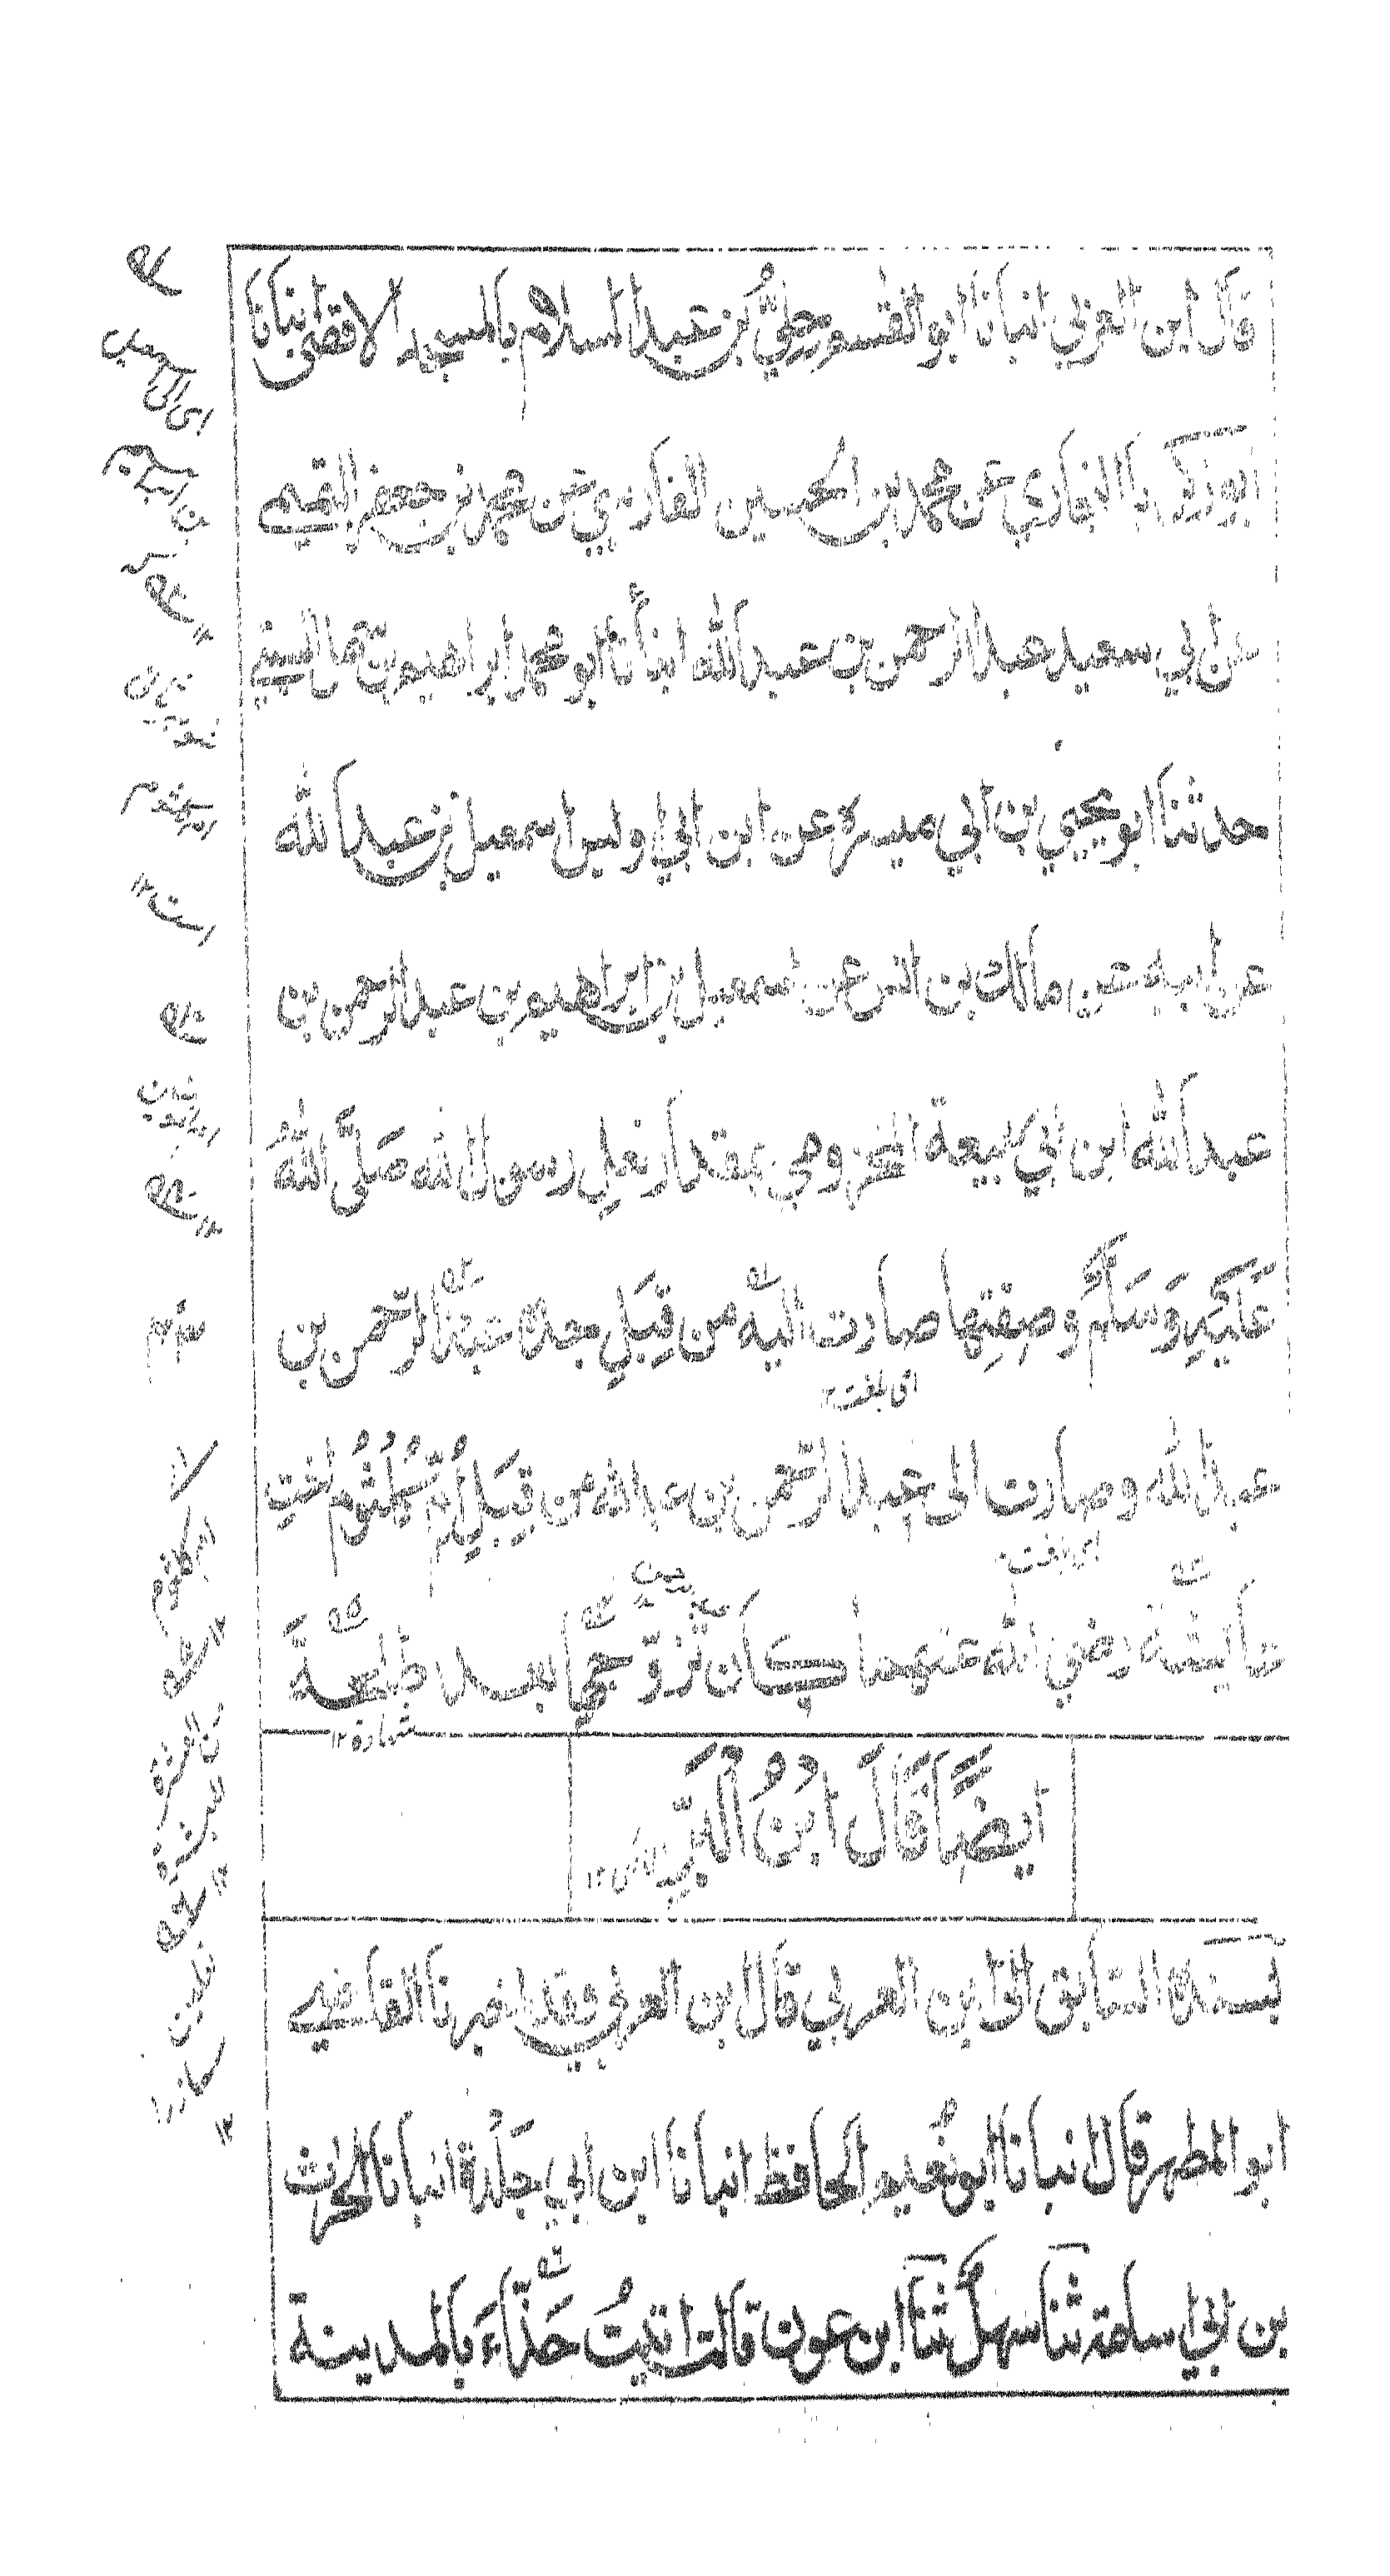 قال ابن العربي انبانا ابو القسم مكي بن عبد السلام بالمسجد الاقصى انبانا
ابو زكريا البخاري عن محمد بن الحسين الفارسي عن محمد بن جعفر التميمي
عن ابي سعيد عبد الرحمن بن عبد الله انبأنا ابو محمد ابراهيم بن
حدثنا ابو يحيي بن ابي ميسرة عن ابن ابي اويس اسمعيل بن عبد الله
عن ابيه عن مالك بن انس عن اسمعيل بن ابراهيم بن عبد الرحمن بن
عبد الله ابن ابي ربيعة المخزومي بمقدار نعل رسول الله صَلَّى اللهُ
عَلَيْهِ وَسَلَّمَ وصِفتِها صارت اليه من قِبَلِ جده عبد الرحمن بن
اى بلغت ١٢
عبد الله وصارت الى عبد الرحمن بن عبد الله من قِبَلِ اُمِّ كُلثُوم اخت
عايشة رضي الله عنهما كان تزوّجها بعد طلحة
شهادة ١٢
ايضًا قَالَ ابْنُ الْبّ
بسنده السابق الى ابن العربي قال ابن العربي وقد اخبرنا القاضي
ابو المطهر قال انبانا ابو نُعيم الحافظ انبانا ابن ابي خلّدة انبانا الحرث
بن ابي اسامة ثنا سهل ثنا ابن عون قال اتيتُ حَذّاءَ بالمدينة
ام كلثوم
است ١٢
ام كلثوم
من العشرة
المبشرة
نعلين